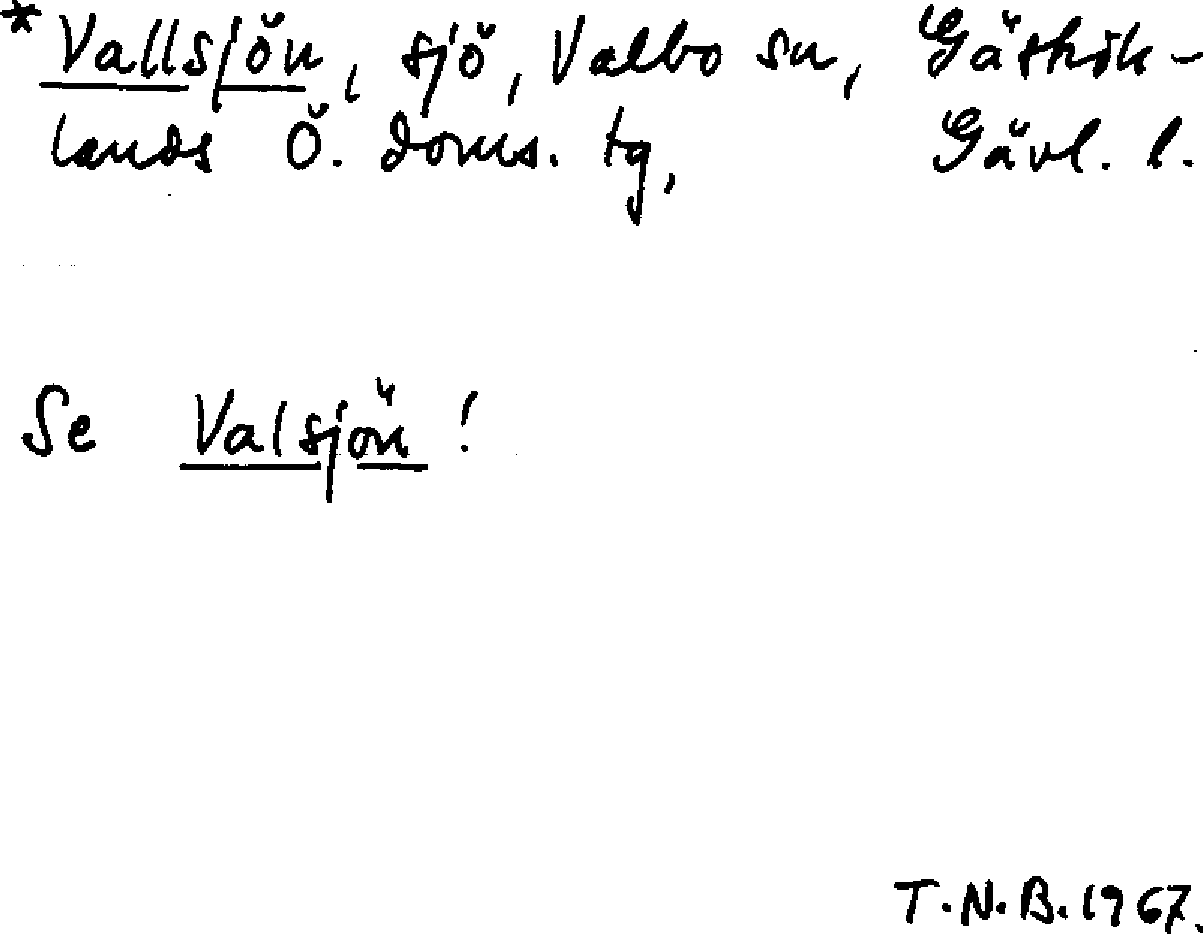 *Vallsjön, sjö, Valbo sn, Gästrik-
lands Ö. doms. tg, Gävl. l.
Se Valsjön!
T.N.B. 1967.